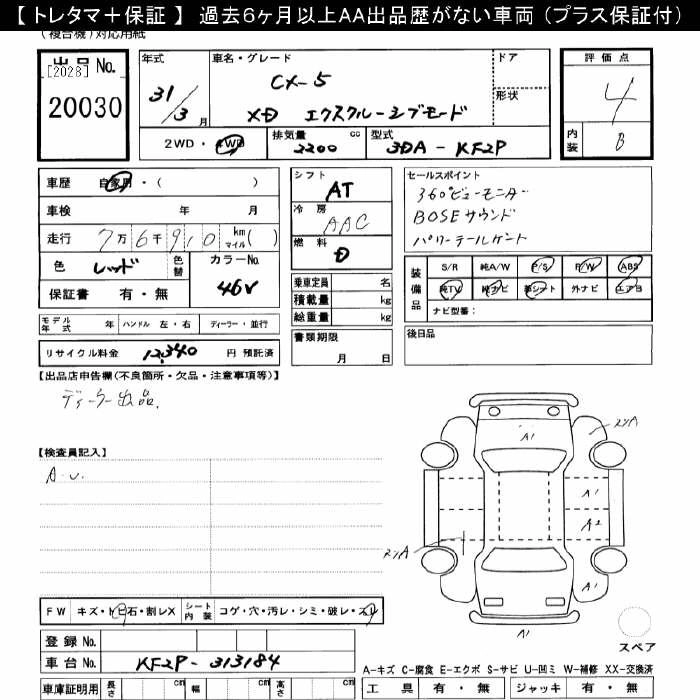 【 トレタマ＋保証 】 過去6ヶ月以上AA出品歴がない車両 (プラス保証付)
(複合機)対応用紙
出品 No.
[2028]
20030
年式 31/3 月
車名・グレード CX-5
XD エクスクルーシブモード
ドア
形状
評価点 4
内装 B
2WD・4WD 排気量 2200 cc 型式 3DA-KF2P
車歴 自家用・( )
車検 年 月
走行 7万6千910 km マイル( )
色 レッド 色替 カラーNo. 46V
保証書 有・無
シフト AT
冷房 AAC
燃料 D
乗車定員 名
積載量 kg
総重量 kg
書類期限 月 日
セールスポイント
360°ビューモニター
BOSEサウンド
パワーテールゲート
装備品 S/R 純A/W P/S P/W ABS
純TV 純ナビ 革シート 外ナビ エアB
ナビ型番：
後日品
モデル年式 年 ハンドル 左・右 ディーラー・並行
リサイクル料金 12,340 円 預託済
【出品店申告欄(不良箇所・欠品・注意事項等)】
ディーラー出品.
【検査員記入】
A・U.
A1
A1
A2
A1
A1
FW キズ・ト 石・割レX シート内装 コゲ・穴・汚レ・シミ・破レ・スレ
登録 No.
車台 No. KF2P-313184
車庫証明用 長さ cm 幅 cm 高さ cm
スペア
A-キズ C-腐食 E-エクボ S-サビ U-凹ミ W-補修 XX-交換済
工具 有・無 ジャッキ 有・無